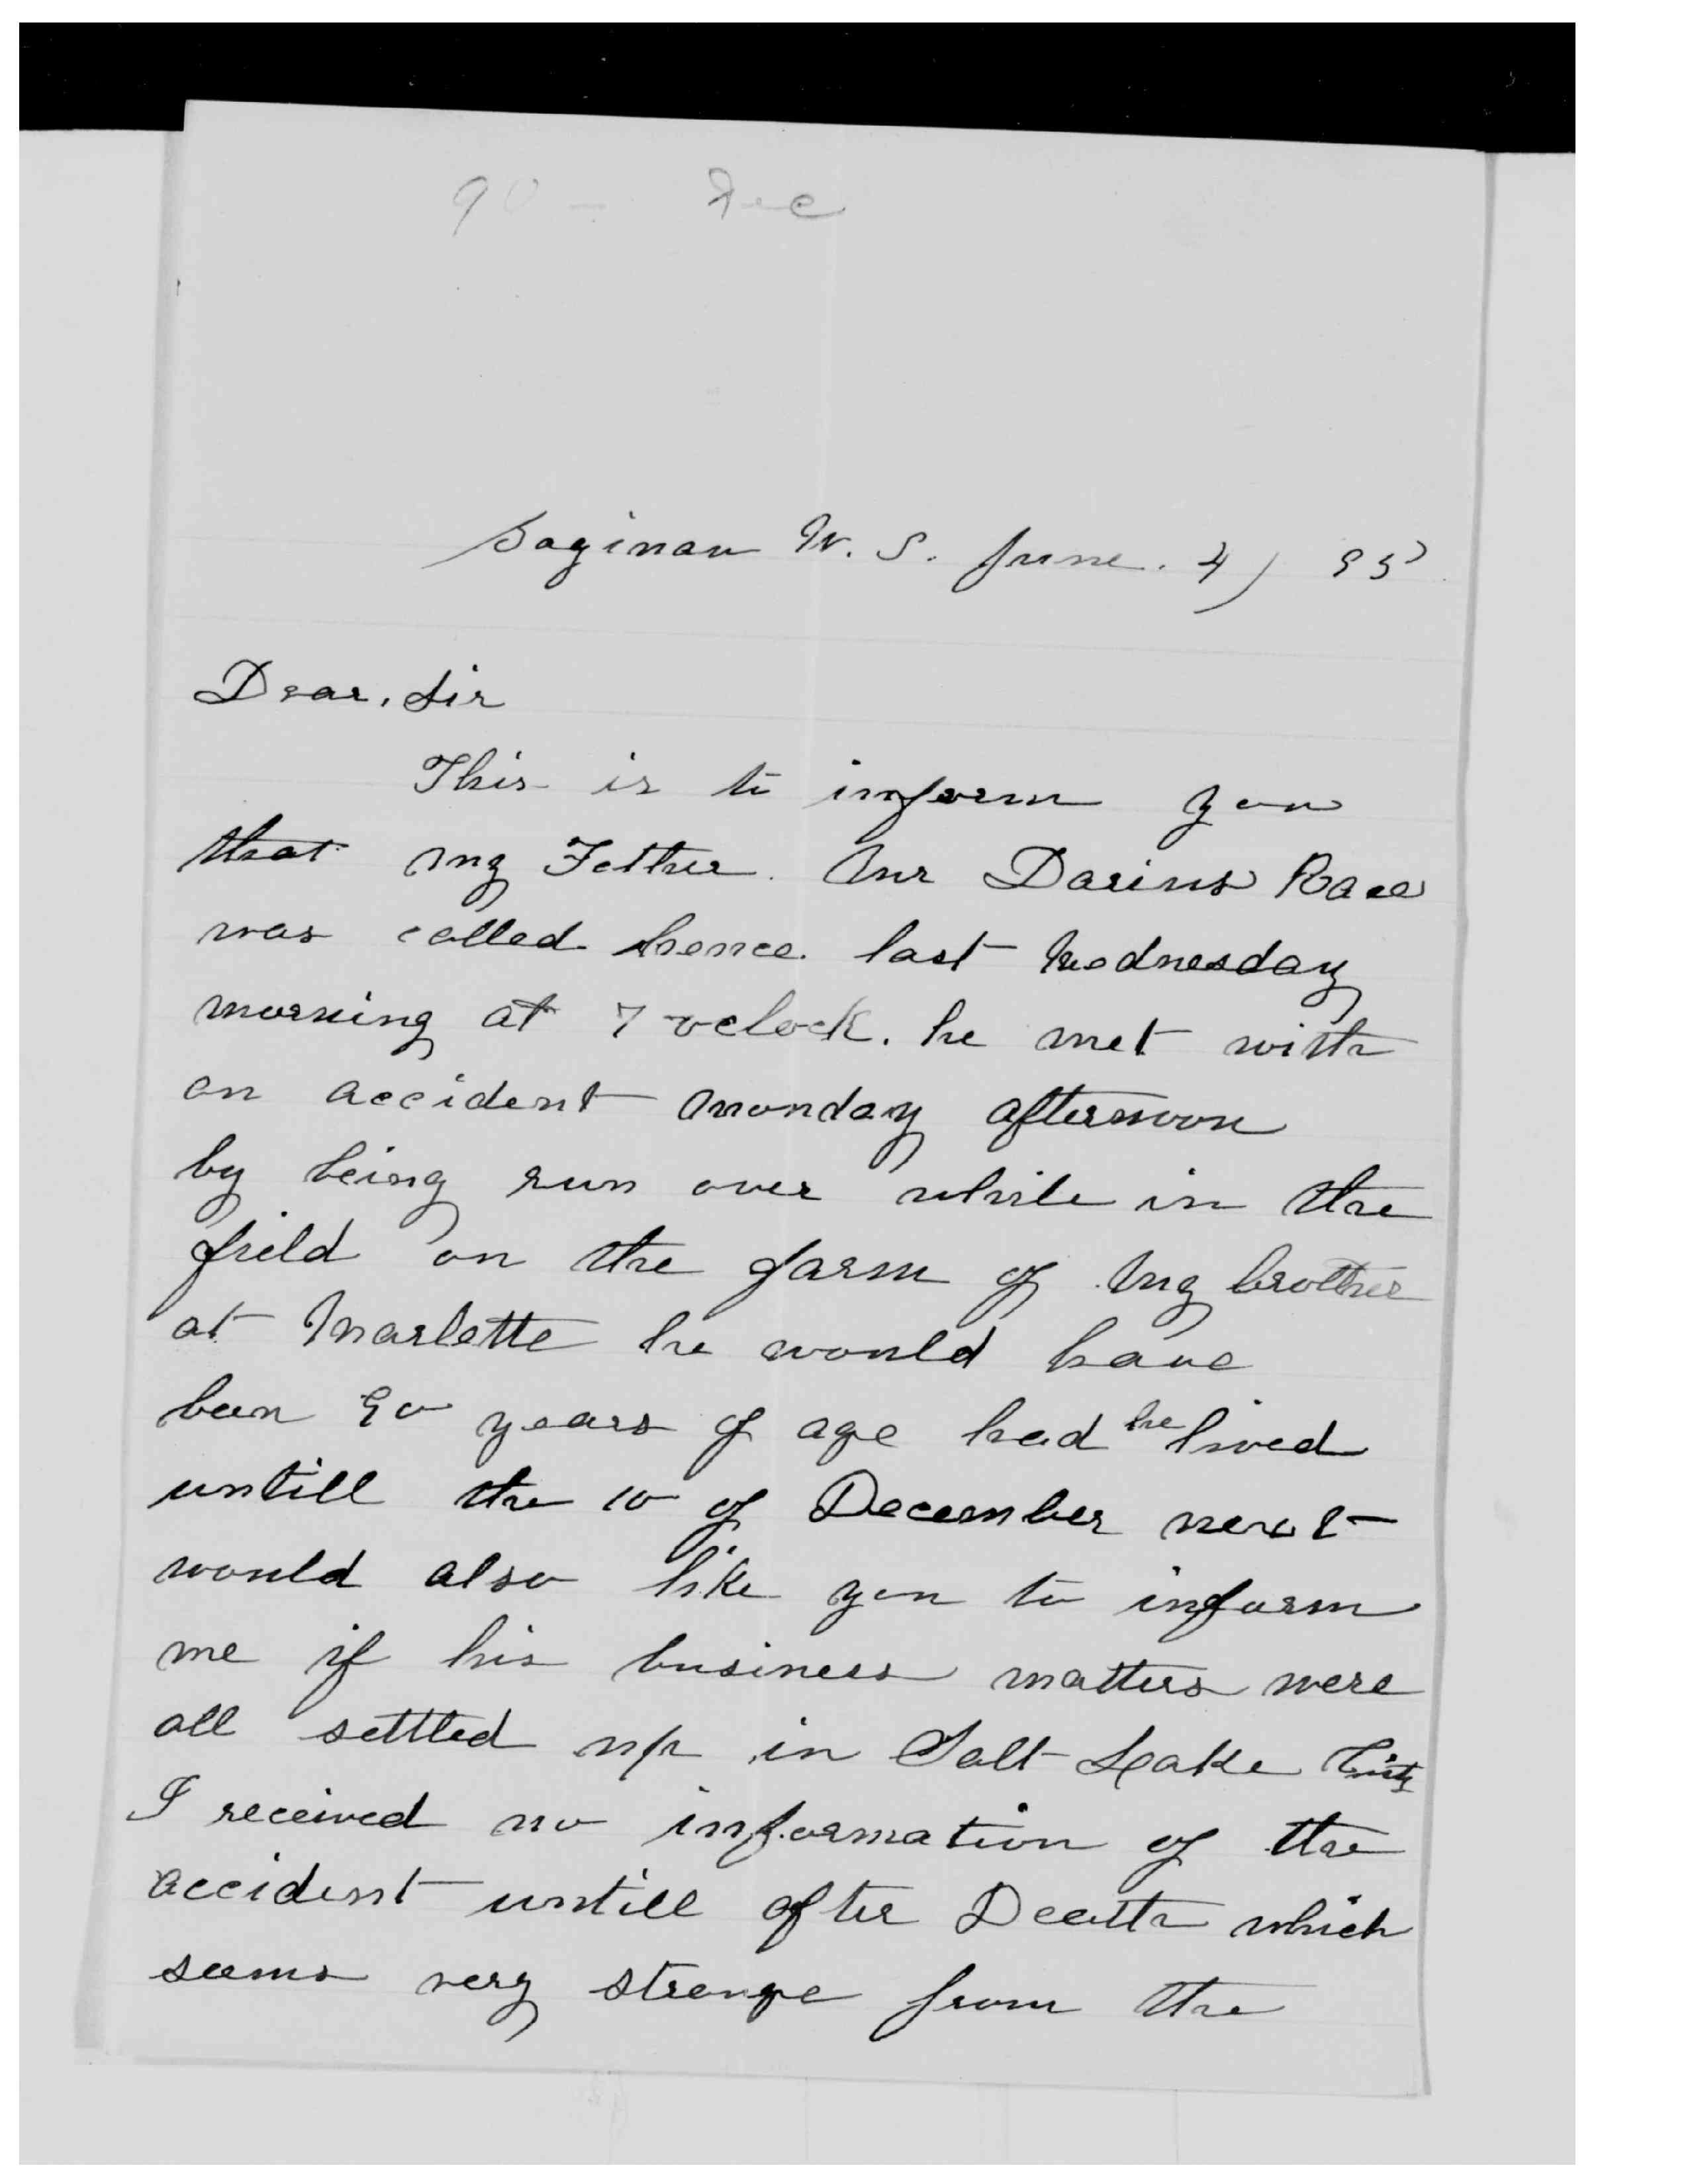 90 – Dec
Saginaw W. S. June. 4, 95
Dear, Sir
This is to inform you
that my Father. Mr Darius Pace
was called hence. last Wednesday
morning at 7 oclock. he met with
an accident Monday afternoon
by being run over while in the
field on the farm of my brother
at Marlette he would have
been 90 years of age had he lived
untill the 10 of December next
would also like you to inform
me if his business matters were
all settled up in Salt Lake City
I received no information of the
accident untill after Death which
seems very strange from the